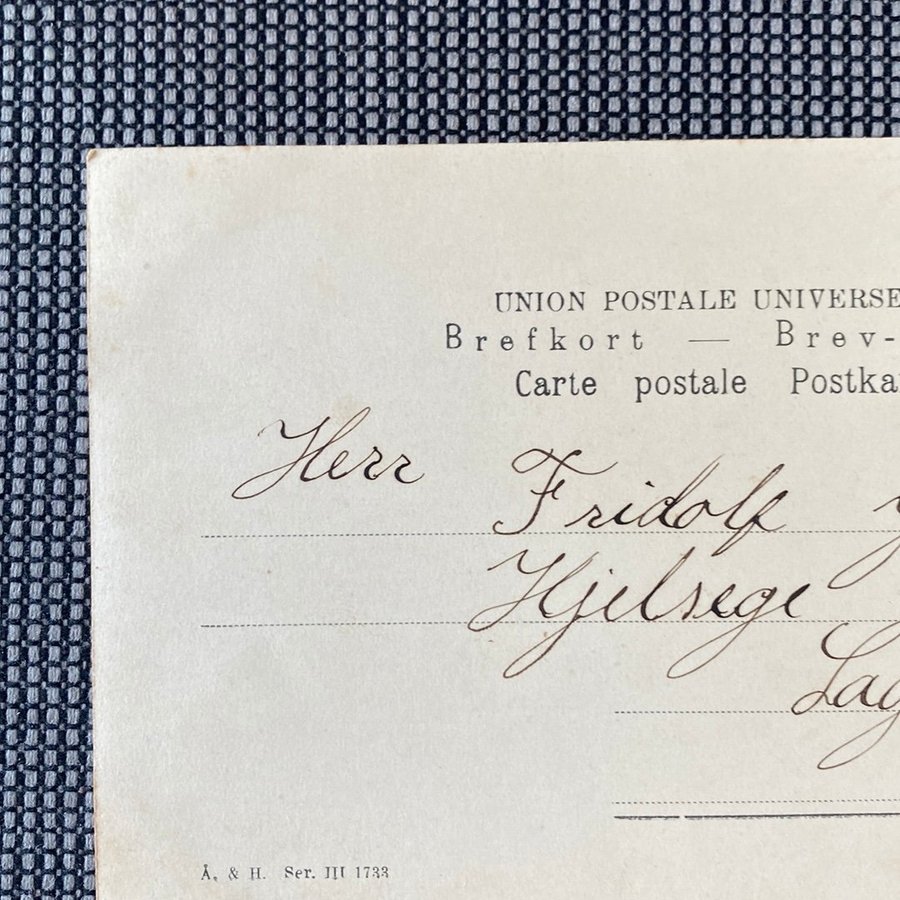 UNION POSTALE UNIVERSE
Brefkort — Brev-
Carte postale Postka
Herr Fridolf
Hjelsege
Lag
Å. & H. Ser. III 1733